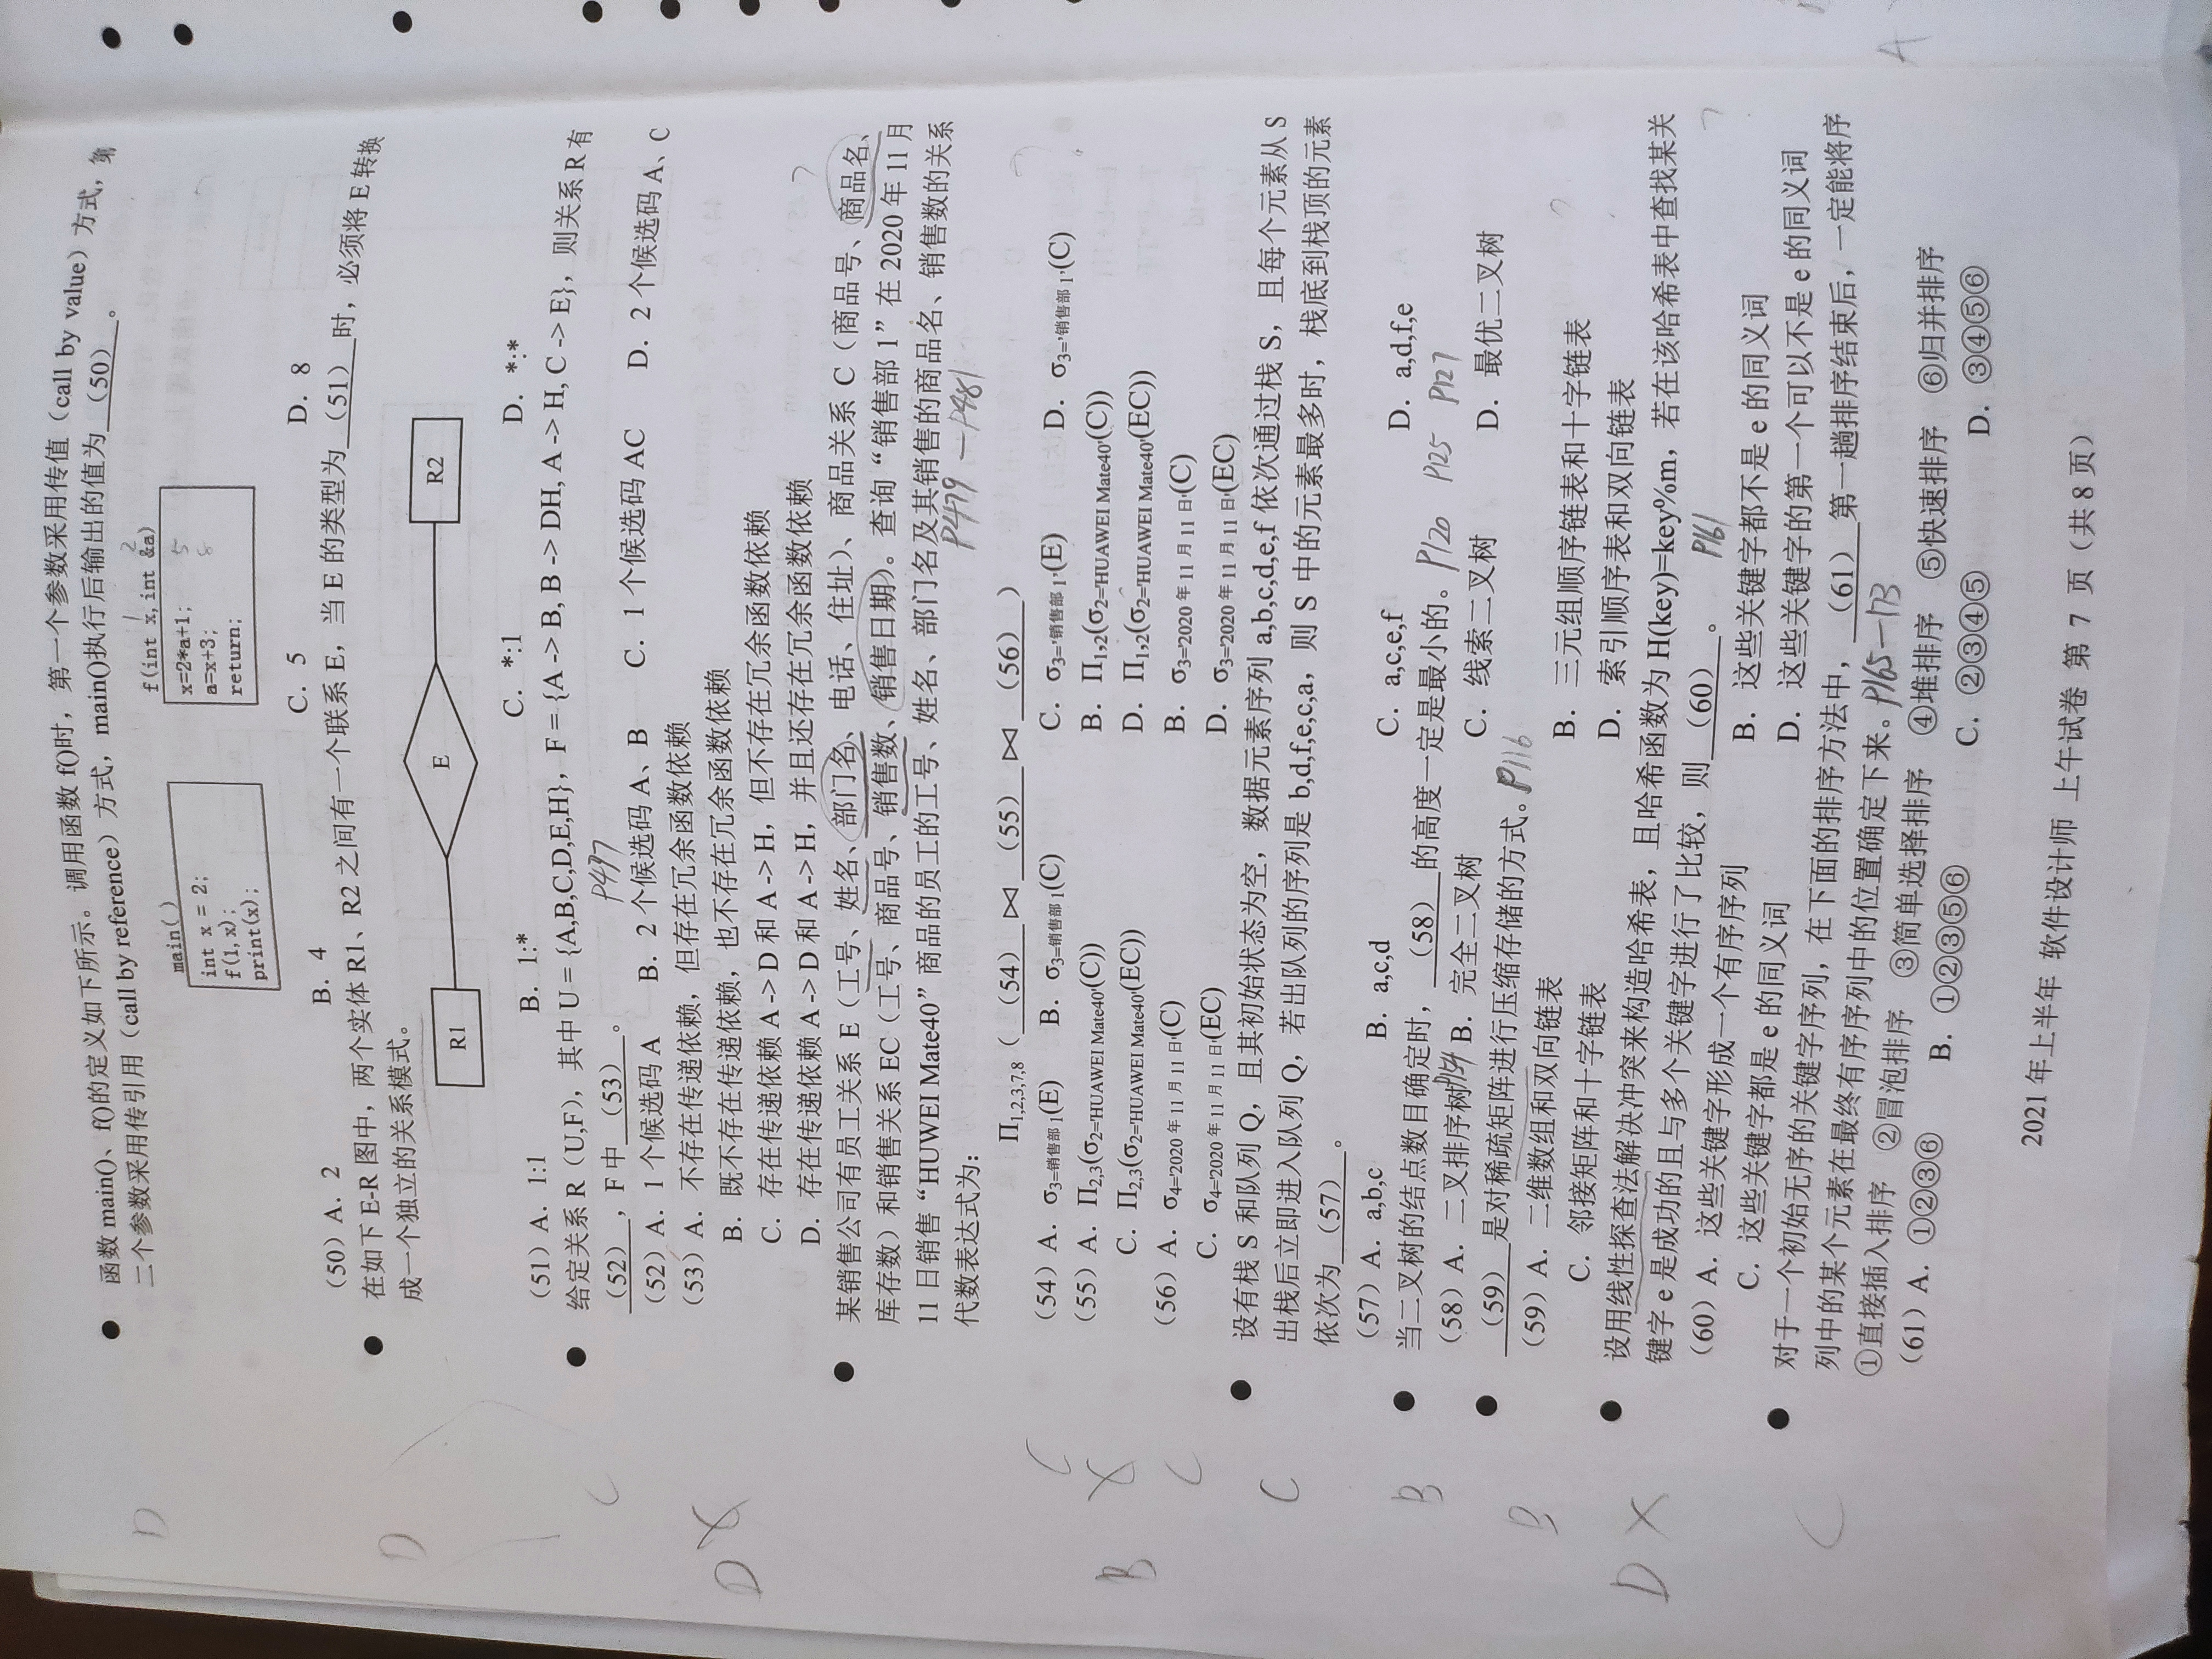 ● 函数 main()、f()的定义如下所示。调用函数 f()时，第一个参数采用传值（call by value）方式，第
二个参数采用传引用（call by reference）方式，main()执行后输出的值为 (50) 。
main()
int x = 2;
f(1,x);
print(x);
f(int x,int &a)
1 2
x=2*a+1; 5
a=x+3; 8
return;
（50）A. 2 B. 4 C. 5 D. 8
D
● 在如下 E-R 图中，两个实体 R1、R2 之间有一个联系 E，当 E 的类型为 (51) 时，必须将 E 转换
成一个独立的关系模式。
R1 E R2
D
（51）A. 1:1 B. 1:* C. *:1 D. *:*
● 给定关系 R（U,F），其中 U = {A,B,C,D,E,H}，F = {A -> B, B -> DH, A -> H, C -> E}，则关系 R 有
(52) ，F 中 (53) 。 P497
C
（52）A. 1 个候选码 A B. 2 个候选码 A、B C. 1 个候选码 AC D. 2 个候选码 A、C
（53）A. 不存在传递依赖，但存在冗余函数依赖
B. 既不存在传递依赖，也不存在冗余函数依赖
C. 存在传递依赖 A -> D 和 A -> H，但不存在冗余函数依赖
D. 存在传递依赖 A -> D 和 A -> H，并且还存在冗余函数依赖
D X
● 某销售公司有员工关系 E（工号、姓名、部门名、电话、住址）、商品关系 C（商品号、商品名、
库存数）和销售关系 EC（工号、商品号、销售数、销售日期）。查询“销售部 1”在 2020 年 11 月
11 日销售“HUWEI Mate40”商品的员工的工号、姓名、部门名及其销售的商品名、销售数的关系
代数表达式为： P479 — P481
Π1,2,3,7,8（ (54) ⋈ (55) ⋈ (56) ）
（54）A. σ3=销售部 1(E) B. σ3=销售部 1(C) C. σ3='销售部 1'(E) D. σ3='销售部 1'(C)
C
（55）A. Π2,3(σ2='HUAWEI Mate40'(C)) B. Π1,2(σ2='HUAWEI Mate40'(C))
C. Π2,3(σ2='HUAWEI Mate40'(EC)) D. Π1,2(σ2='HUAWEI Mate40'(EC))
B X
（56）A. σ4='2020 年 11 月 11 日'(C) B. σ3='2020 年 11 月 11 日'(C)
C. σ4='2020 年 11 月 11 日'(EC) D. σ3='2020 年 11 月 11 日'(EC)
C
● 设有栈 S 和队列 Q，且其初始状态为空，数据元素序列 a,b,c,d,e,f 依次通过栈 S，且每个元素从 S
出栈后立即进入队列 Q，若出队列的序列是 b,d,f,e,c,a，则 S 中的元素最多时，栈底到栈顶的元素
依次为 (57) 。
C
（57）A. a,b,c B. a,c,d C. a,c,e,f D. a,d,f,e
● 当二叉树的结点数目确定时， (58) 的高度一定是最小的。 P120 P125 P127
（58）A. 二叉排序树 B. 完全二叉树 C. 线索二叉树 D. 最优二叉树
B
● (59) 是对稀疏矩阵进行压缩存储的方式。 P116
（59）A. 二维数组和双向链表 B. 三元组顺序链表和十字链表
C. 邻接矩阵和十字链表 D. 索引顺序表和双向链表
B
● 设用线性探查法解决冲突来构造哈希表，且哈希函数为 H(key)=key%m，若在该哈希表中查找某关
键字 e 是成功的且与多个关键字进行了比较，则 (60) 。 P161
（60）A. 这些关键字形成一个有序序列 B. 这些关键字都不是 e 的同义词
C. 这些关键字都是 e 的同义词 D. 这些关键字的第一个可以不是 e 的同义词
D X
● 对于一个初始无序的关键字序列，在下面的排序方法中， (61) 第一趟排序结束后，一定能将序
列中的某个元素在最终有序序列中的位置确定下来。 P165—173
①直接插入排序 ②冒泡排序 ③简单选择排序 ④堆排序 ⑤快速排序 ⑥归并排序
（61）A. ①②③⑥ B. ①②③⑤⑥ C. ②③④⑤ D. ③④⑤⑥
C
A
2021 年上半年 软件设计师 上午试卷 第 7 页（共 8 页）